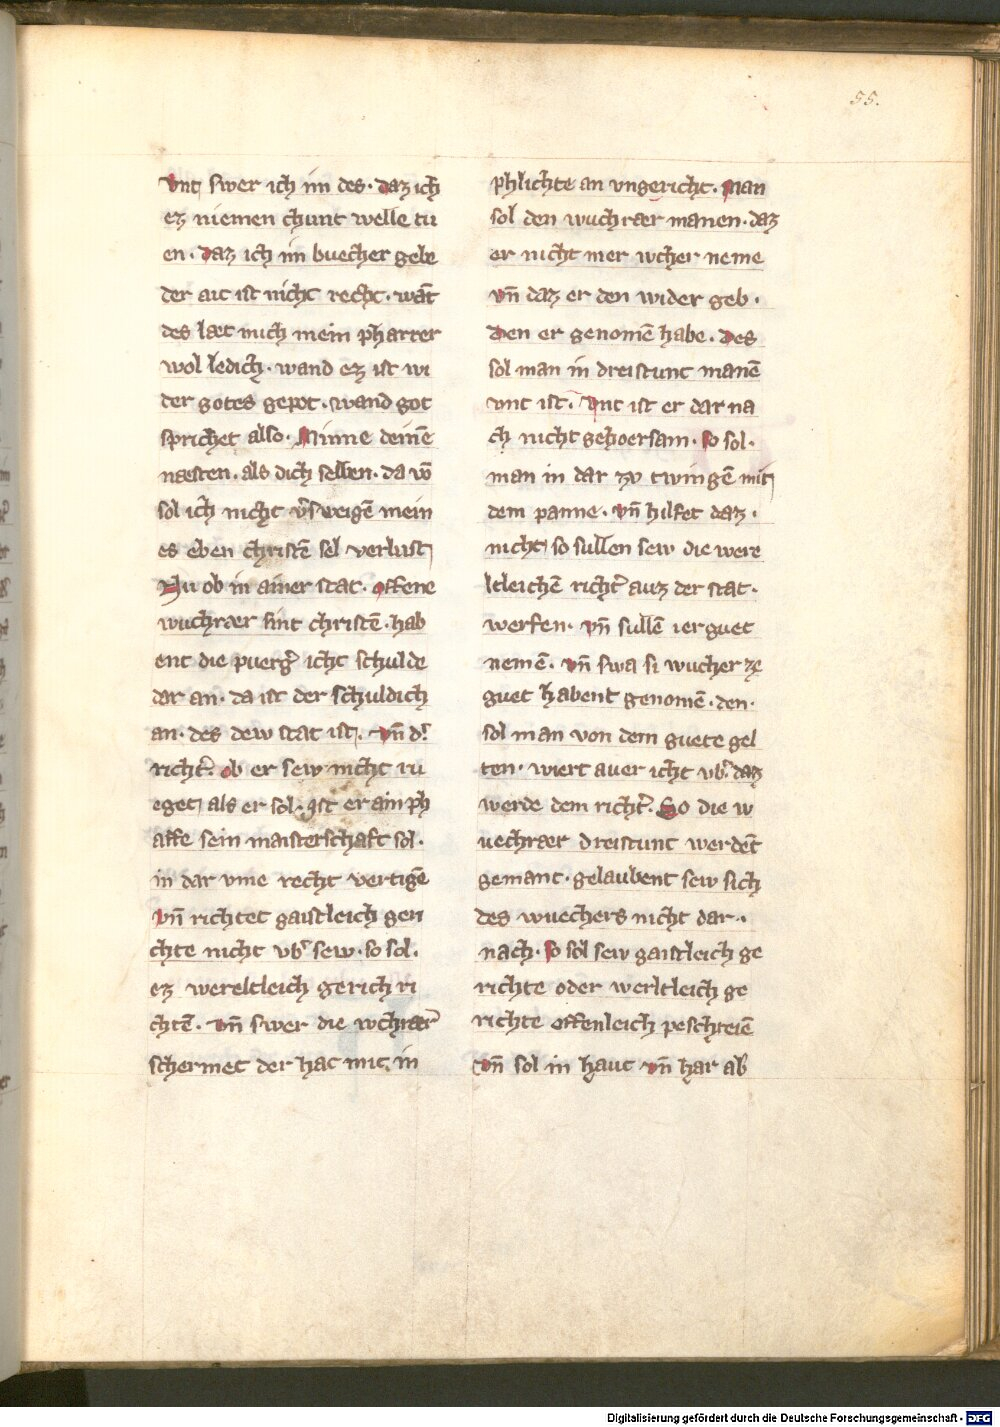 55.
vnt swer ich im des · daz ich
ez niemen chunt welle tu
en · daz ich im buecher gebe
der ait ist nicht recht · want
des læt mich mein pharrer
wol ledich · wand ez ist wi
der gotes gepot · wand got
sprichet also · Minne deinē
næsten · als dich selben · da vō
sol ich nicht v͛sweigē mein
es eben christē sel verlust
Nu ob in ainer stat · offene
wuchrær sint christē · hab
ent die puerg͛ icht schulde
dar an · da ist der schuldich
an · des dew stat ist · vn̄ d͛
richt͛ · ob er sew nicht ru
eget als er sol · ist er ain ph
affe sein maisterschaft sol ·
in dar vme recht vertigē
vn̄ richtet gaistleich geri
chte nicht vb͛ sew · so sol ·
ez wereltleich gerich ri
chtē · vn̄ swer die wchrær
schermet der hat mit in
phlichte an vngericht · Man
sol den wuchrær manen · daz
er nicht mer wcher neme
vn̄ daz er den wider geb ·
Den er genomē habe · Des
sol man in dreistunt manē
vnt ist · vnt ist er dar na
ch nicht gehoersam · so sol ·
man in dar zv twingē mit
dem panne · vn̄ hilfet daz ·
nicht so sullen sew die were
ltleichē richt͛ auz der stat ·
werfen · vn̄ sullē ier guet
nemē · vn̄ swa si wucher ze
guet habent genomē · den ·
sol man von dem guete gel
ten · wiert auer icht vb͛ daz
werde dem richt͛ · So die w
uechrær dreistunt werdēt
gemant · gelaubent sew sich
des wuechers nicht dar ·
nach · so sol sew gaistleich ge
richte oder werltleich ge
richte offenleich peschreiē
vn̄ sol in haut vn̄ har ab
Digitalisierung gefördert durch die Deutsche Forschungsgemeinschaft - DFG